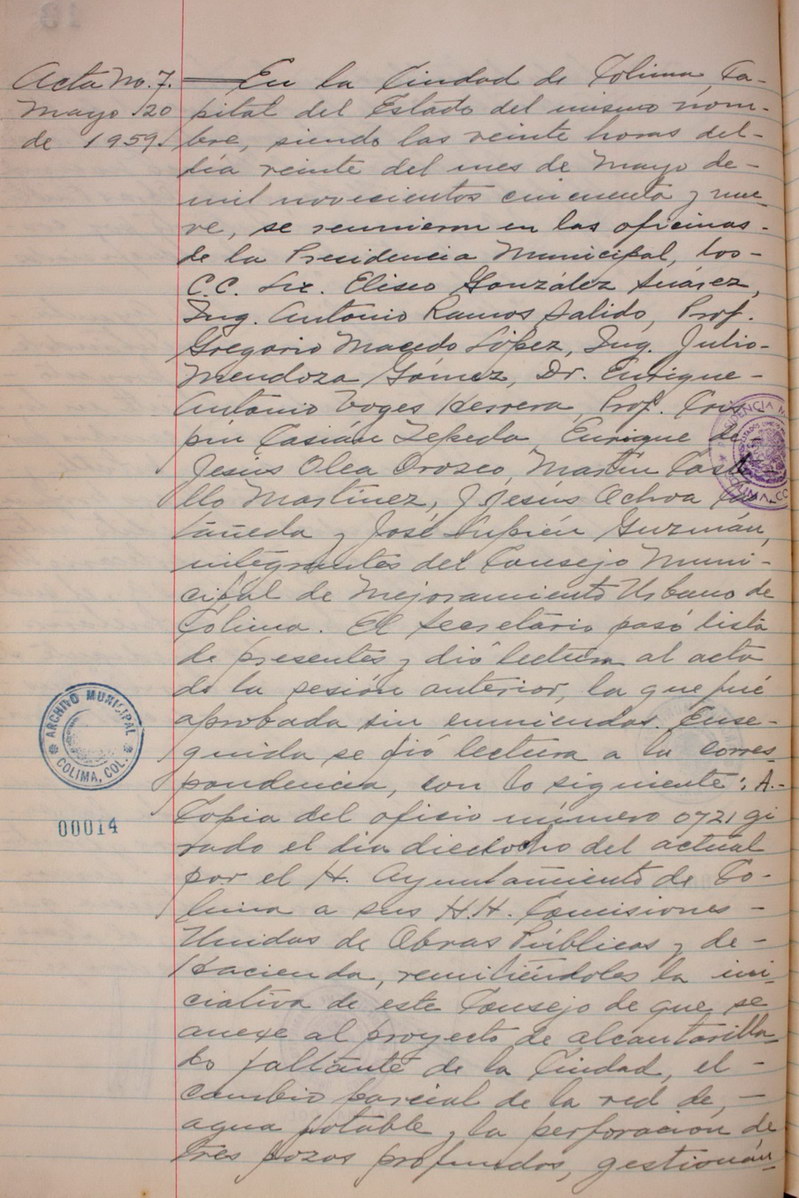 Acta No. 7.
Mayo 20
de 1959.
—En la Ciudad de Colima, Ca-
pital del Estado del mismo nom-
bre, siendo las veinte horas del-
día veinte del mes de Mayo de-
mil novecientos cincuenta y nue-
ve, se reunieron en las oficinas-
de la Presidencia Municipal, los-
C.C. Lic. Eliseo González Suárez,
Ing. Antonio Ramos Salido, Prof.
Gregorio Macedo López, Ing. Julio-
Mendoza Gómez, Dr. Enrique-
Antonio Voges Herrera, Prof. Cris
pín Casián Zepeda, Enrique de
Jesús Olea Orosco, Martín Casti
llo Martínez, J. Jesús Ochoa Cas
tañeda y José Lupién Guzmán,
integrantes del Consejo Muni-
cipal de Mejoramiento Urbano de
Colima. El Secretario pasó lista
de presentes y dió lectura al acta
de la sesión anterior, la que fué
aprobada sin enmiendas. Ense-
guida se dió lectura a la corres-
pondencia, con lo siguiente: A.-
Copia del oficio número 0721 gi
rado el día dieciocho del actual
por el H. Ayuntamiento de Co-
lima a sus H.H. Comisiones-
Unidas de Obras Públicas y de-
Hacienda, remitiéndoles la ini-
ciativa de este Consejo de que se
anexe al proyecto de alcantarilla
do faltante de la Ciudad, el-
cambio parcial de la red de,-
agua potable y la perforación de
tres pozos profundos, gestionán-
ARCHIVO MUNICIPAL
COLIMA, COL.
00014